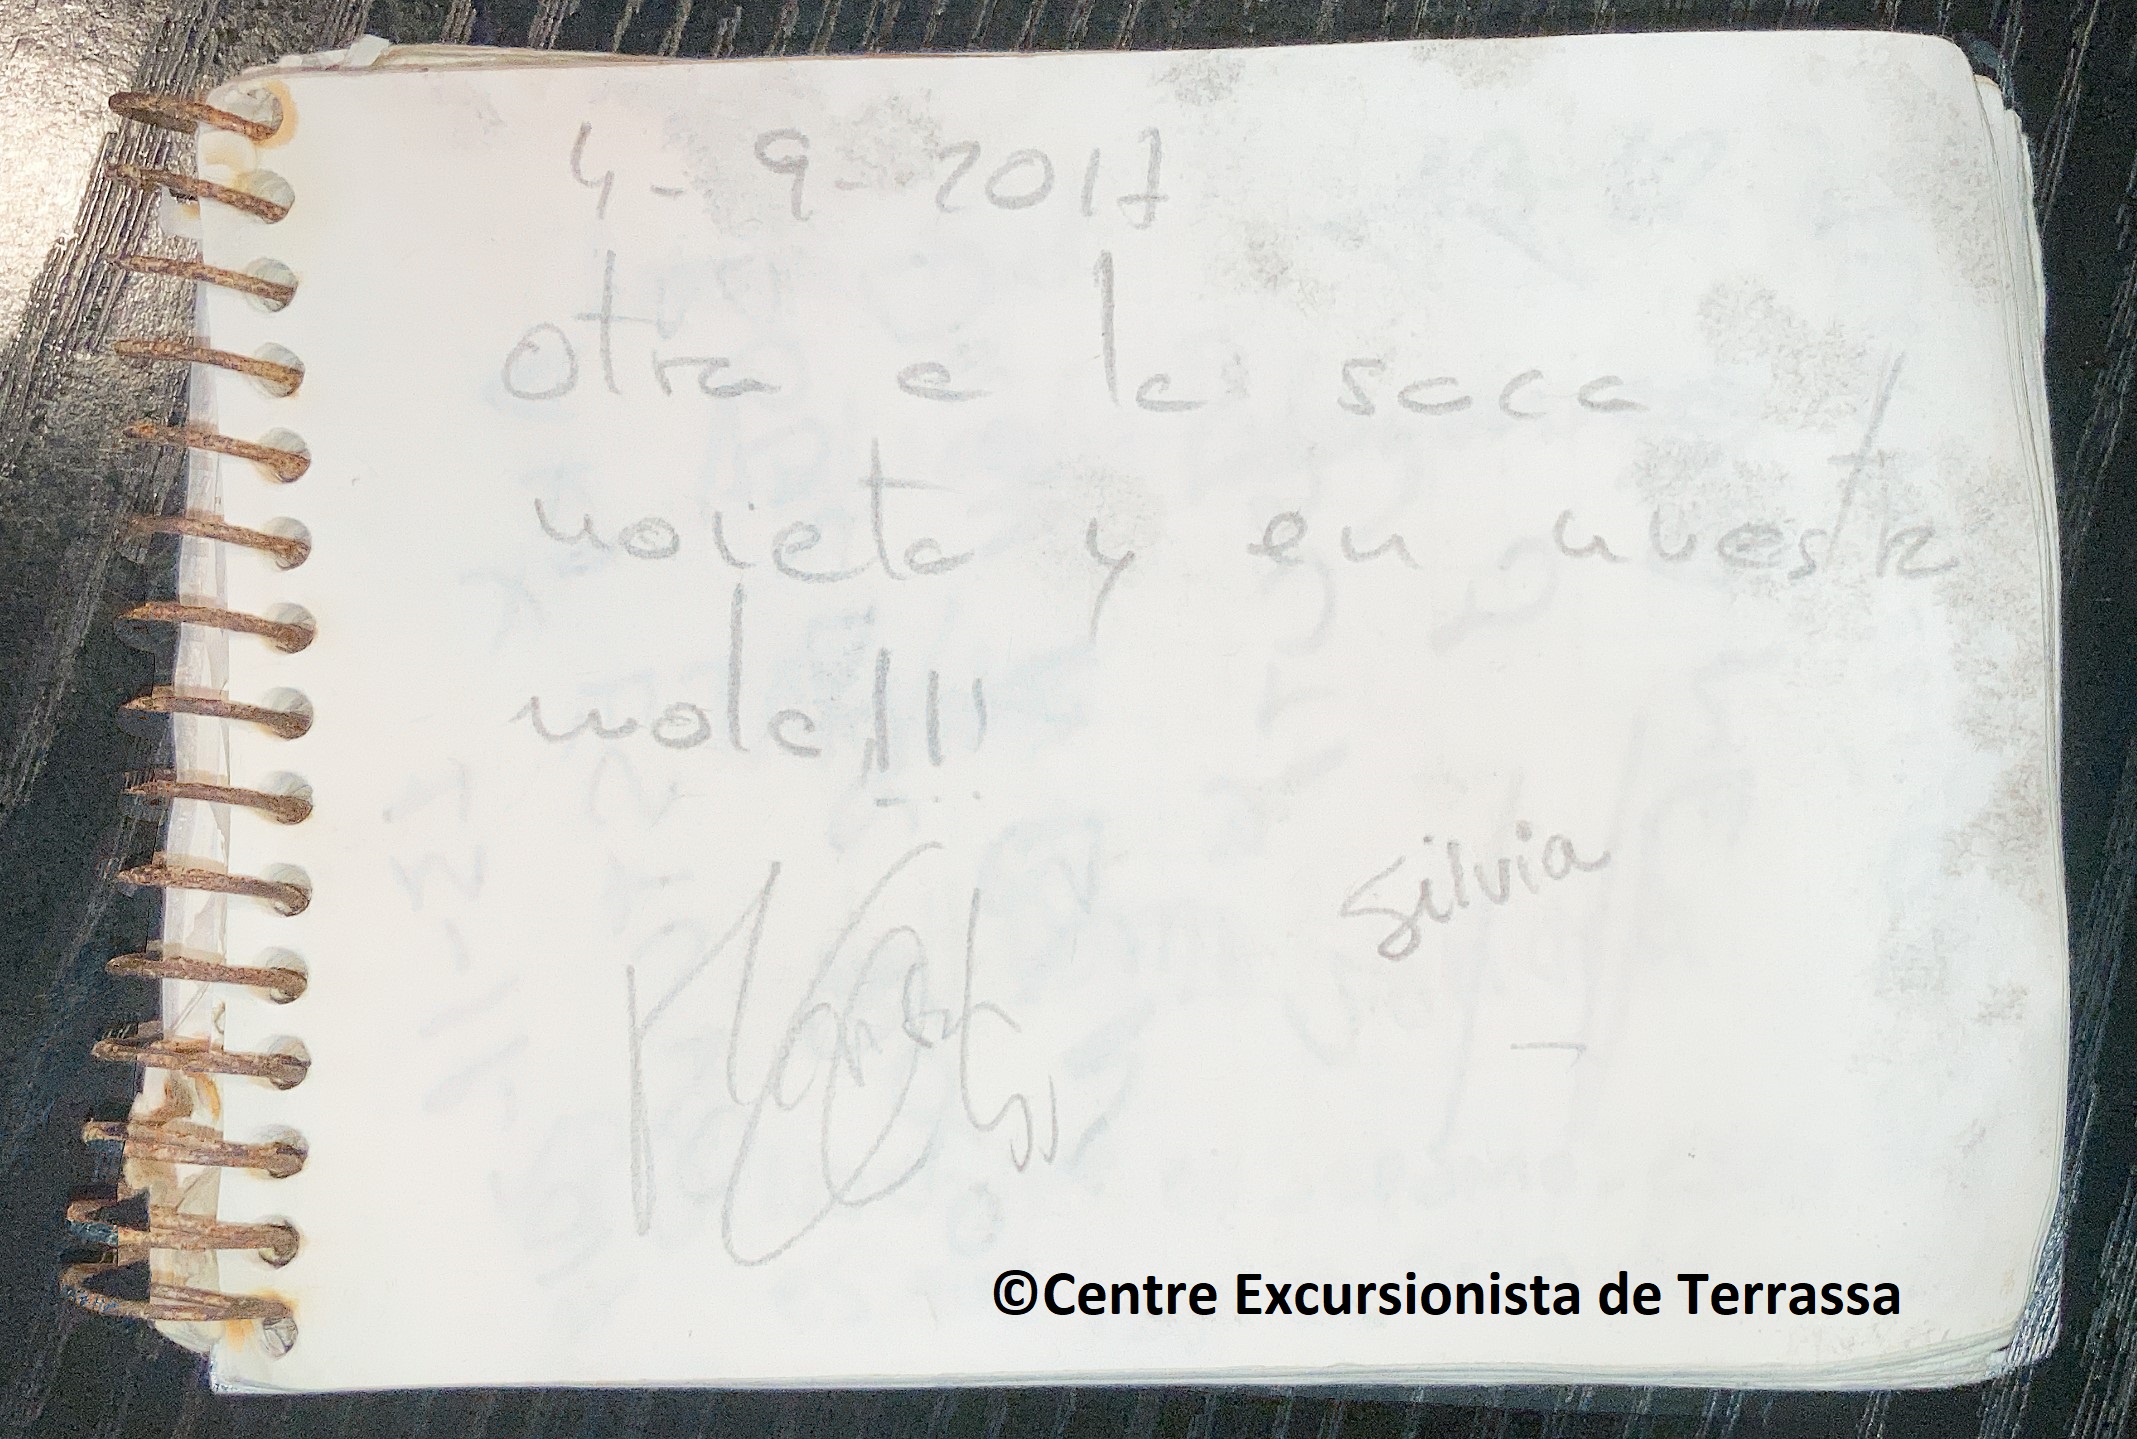 4-9-2017
otra a la saca
noieta y en nuestra
mola!!!
Silvia
©Centre Excursionista de Terrassa